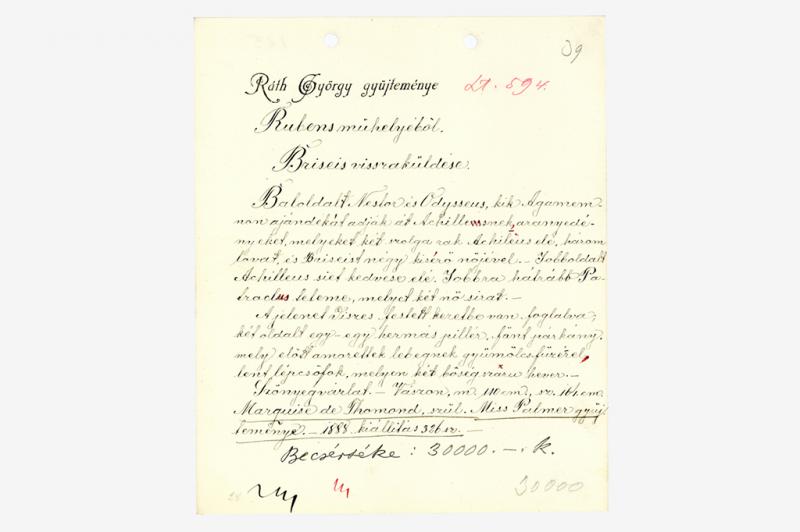 39
Ráth György gyüjteménye Lt. 594.
Rubens mühelyéböl.
Briseis visszaküldése.
Baloldalt Nestor és Odysseus, kik Agamem-
non ajándékát adják át Achilleusnek, aranyedé-
nyeket, melyeket két szolga rak Achileus elé, három
lovat, és Briseist négy kisérö nöjével. – Jobboldalt
Achilleus siet kedvese elé. Jobbra hátrább Pa-
traclus teteme, melyet két nö sirat. –
A jelenet diszes festett keretbe van foglalva;
két oldalt egy-egy hermás pillér, fönt párkány,
mely elött amorettek lebegnek gyümölcsfüzérel,
lent lépcsöfok, melyen két böség szaru hever. –
Szönyegvázlat. – Vászon, m. 110 cm., sz. 164 cm.
Marquise de Thomond, szül. Miss Palmer gyüj-
teménye. – 1888. kiállitás 326 sz. –
Becsértéke: 30000. – . K.
30000